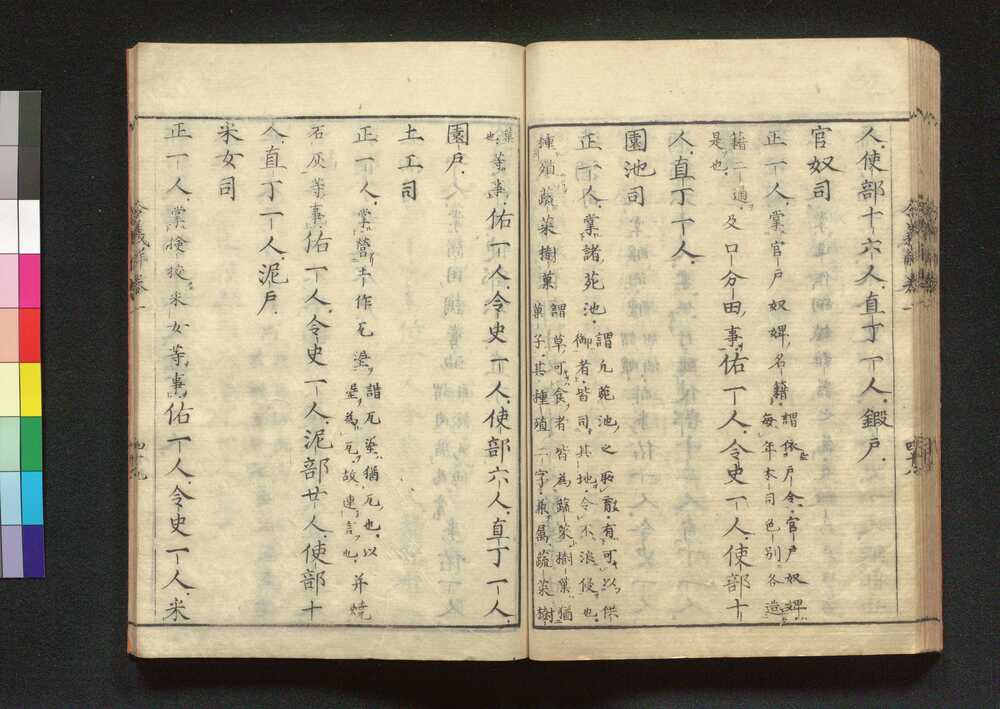 人。使部十六人。直丁一人。鍛戸。
官奴司
正一人。掌官戸奴婢名籍。謂依戸令。官戸奴婢。
毎年本司色別各造
籍二通。
是也。
及口分田事。佑一人。令史一人。使部十
人。直丁一人。
園池司
正一人。掌諸苑池。謂凡苑池之所散有可以供
御者。皆司其地。令不浪侵也。
種殖蔬菜樹菓謂草可食者。皆為蔬菜。樹菓猶
菓子。其種殖二字。兼属蔬菜樹
菓
也。
等事。佑一人。令史一人。使部六人。直丁一人。
園戸。
土工司
正一人。掌營土作瓦埿。謂瓦埿猶瓦也。以
埿為瓦。故連言也。
并焼
石灰等事。佑一人。令史一人。泥部廿人。使部十
人。直丁一人。泥戸。
采女司
正一人。掌檢挍采女等事。佑一人。令史一人。采
令義解巻一